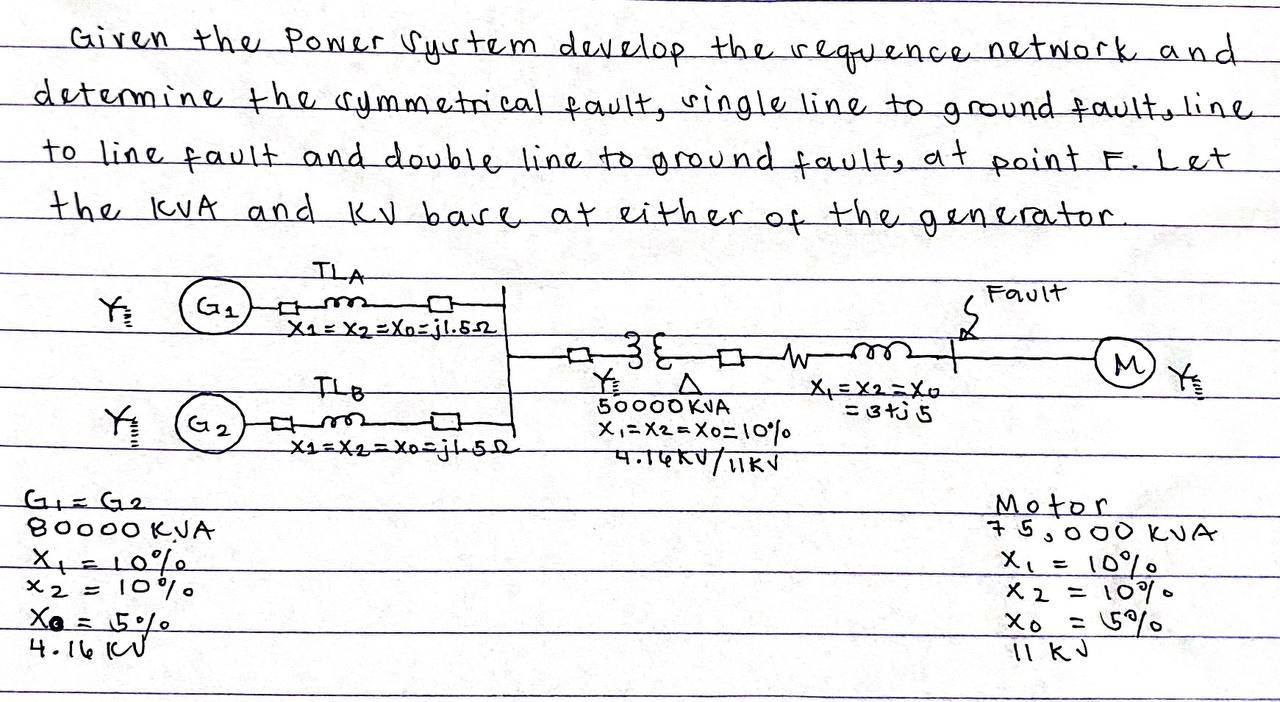 Given the Power System develop the sequence network and
determine the symmetrical fault, single line to ground fault, line
to line fault and double line to ground fault, at point F. Let
the KVA and KV base at either of the generator.
TLA
G1
X1 = X2 = X0 = j1.5Ω
TLB
G2
X1 = X2 = X0 = j1.5Ω
Y Δ
50000 KVA
X1 = X2 = X0 = 10%
4.16KV/11KV
X1 = X2 = X0
= 3+j5
Fault
M
Y
Y
Y
G1 = G2
80000 KVA
X1 = 10%
X2 = 10%
X0 = 5%
4.16 KV
Motor
75,000 KVA
X1 = 10%
X2 = 10%
X0 = 5%
11 KV